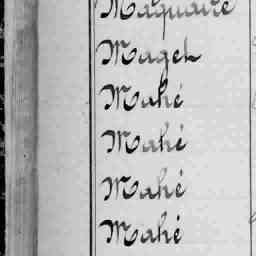 Maquaire
Magek
Mahé
Mahé
Mahé
Mahé